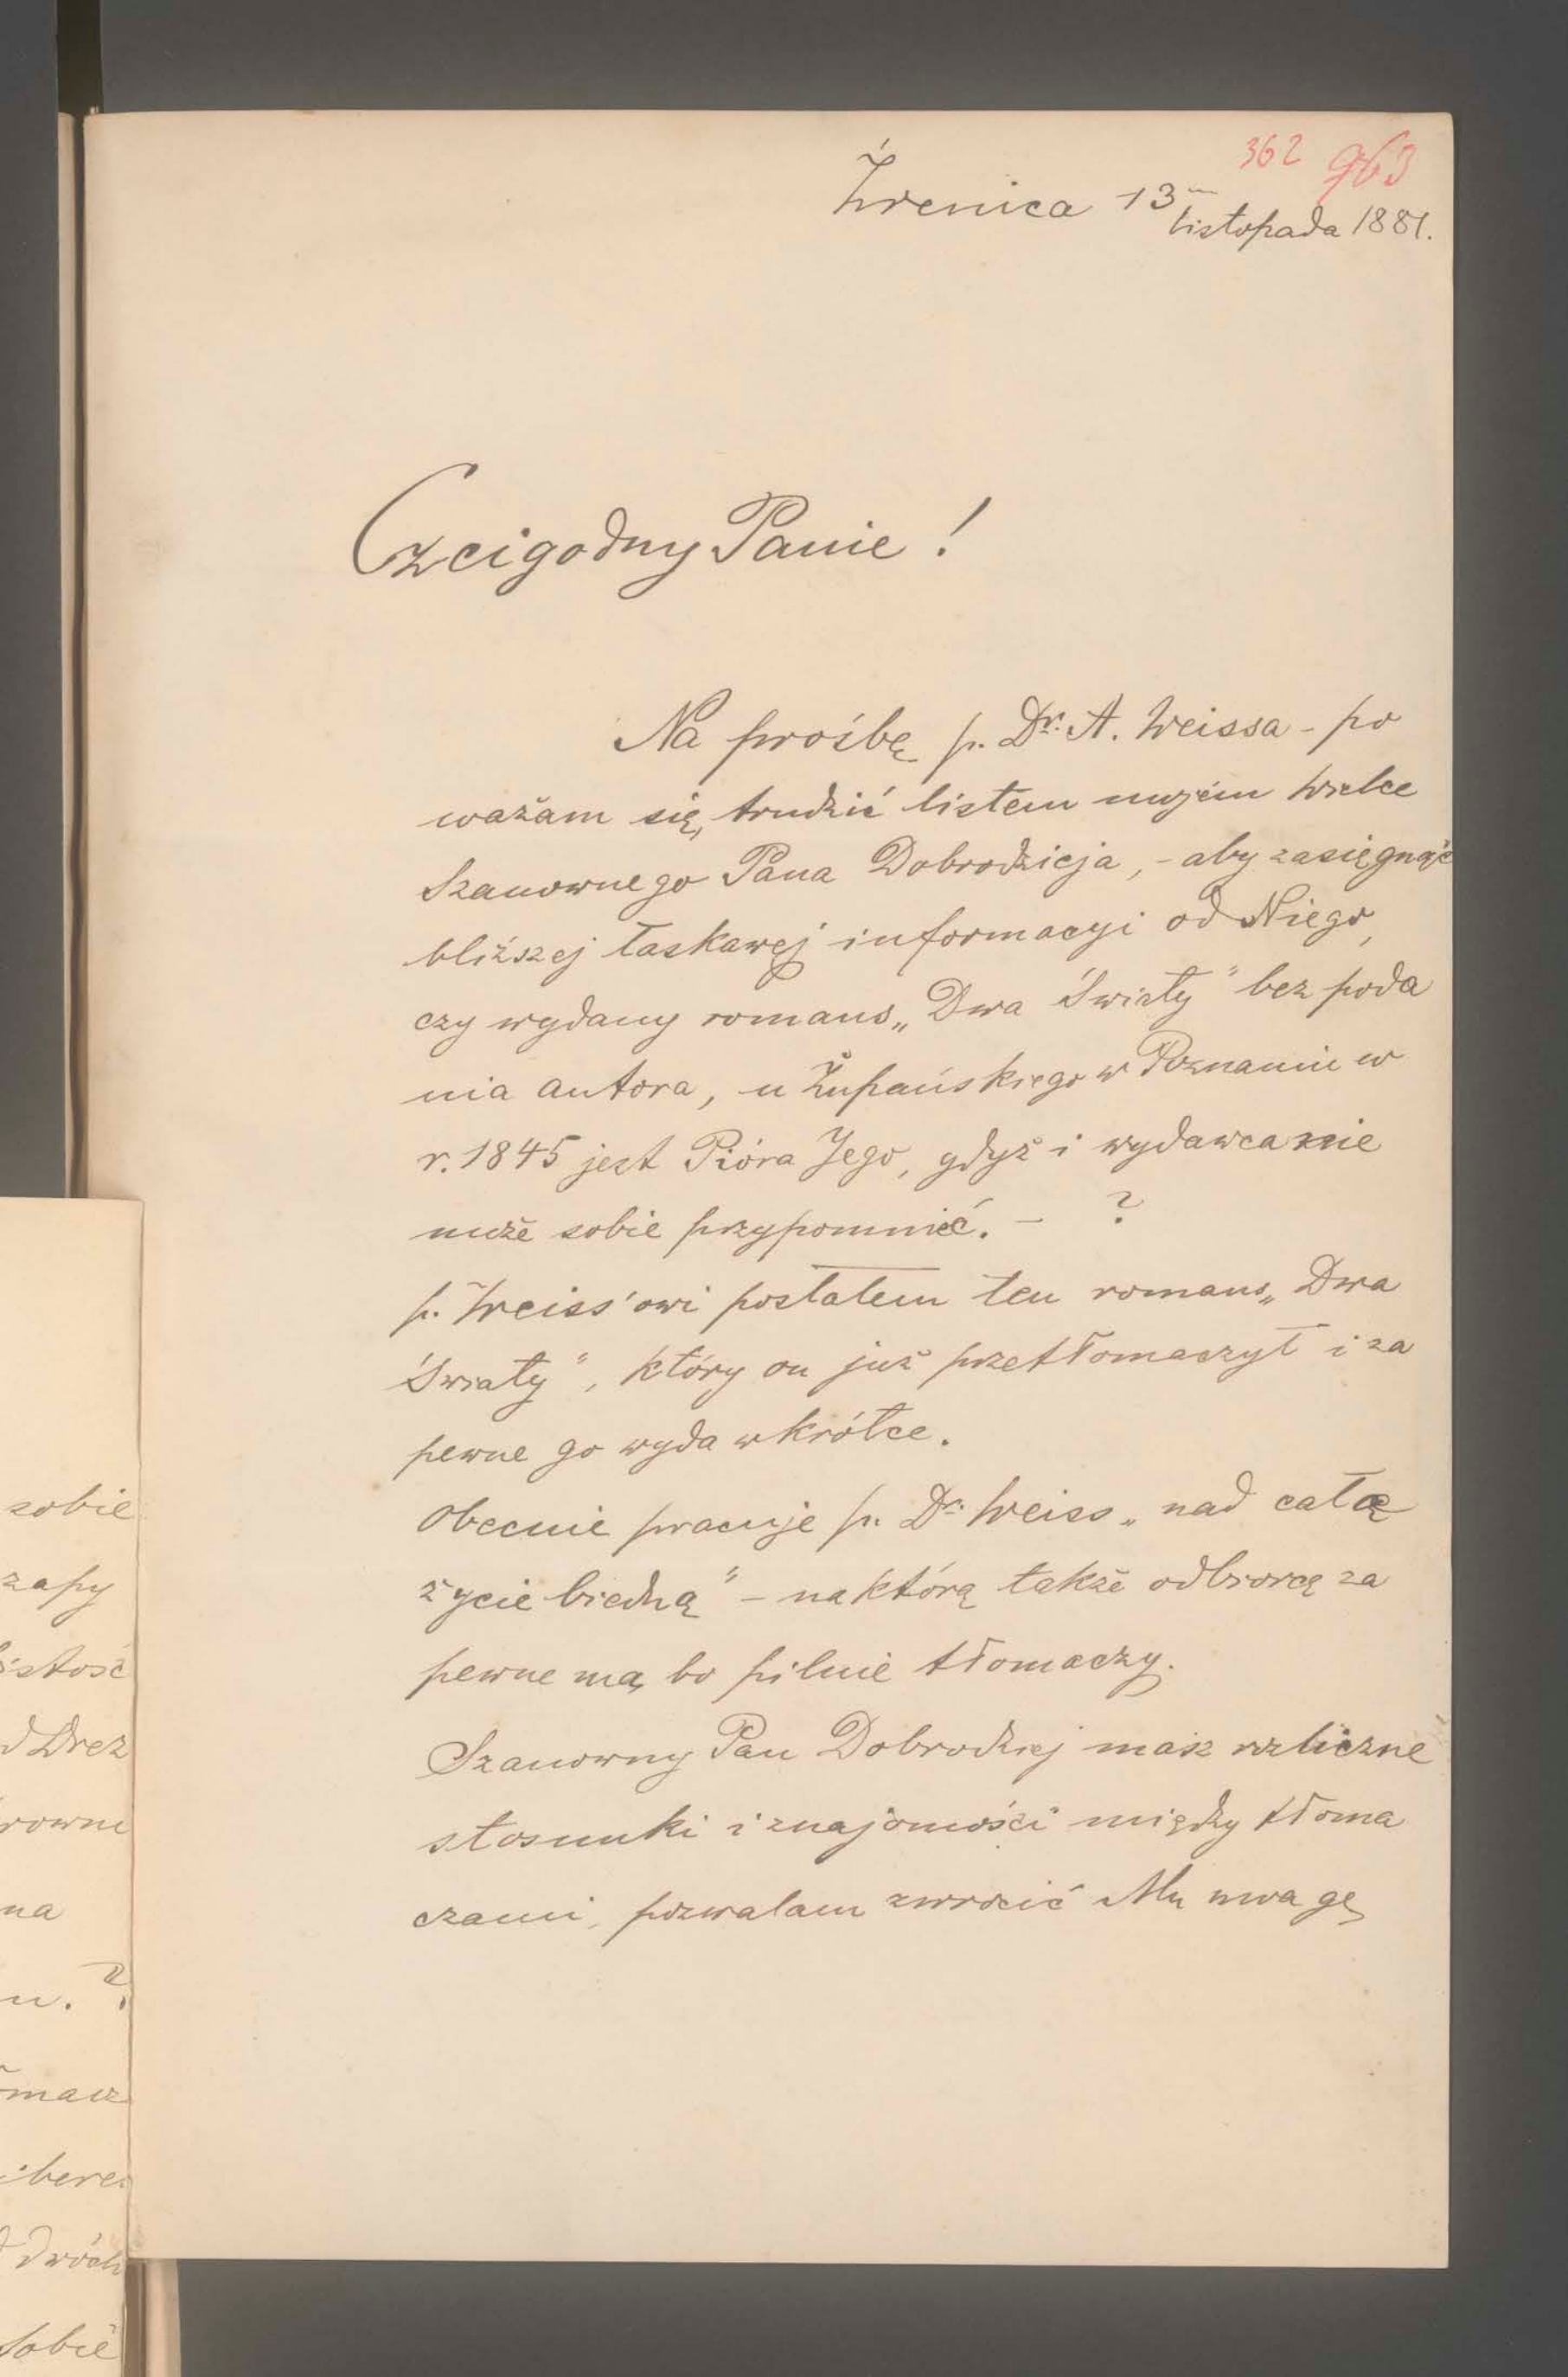 362 963
Źrenica 13
listopada 1881.
Czcigodny Panie!
Na prośbę p. Dr. A. Weissa - po
ważam się, trudzić listem mojém Wielce
Szanownego Pana Dobrodzieja, - aby zasięgnąć
bliższej łaskawej informacyi od Niego,
czy wydany romans „Dwa Światy" bez poda
nia autora, u Żupańskiego w Poznaniu w
r. 1845 jest Pióra Jego, gdyż i wydawca nie
może sobie przypomnieć. - ?
p. Weiss'owi posłałem ten romans „Dwa
Światy", który on już przetłomaczył i za
pewne go wyda wkrótce.
Obecnie pracuje p. Dr. Weiss „nad całą
życie biedną" - na którą także odbiorcę za
pewne ma, bo pilnie tłomaczy.
Szanowny Pan Dobrodziej masz rozliczne
stosunki i znajomości między tłoma
czami, pozwalam zwrócić Mu uwagę
sobie
zapy
istość
d Drez
rowne
na
u. ?
macz
bere
dwóch
sobie